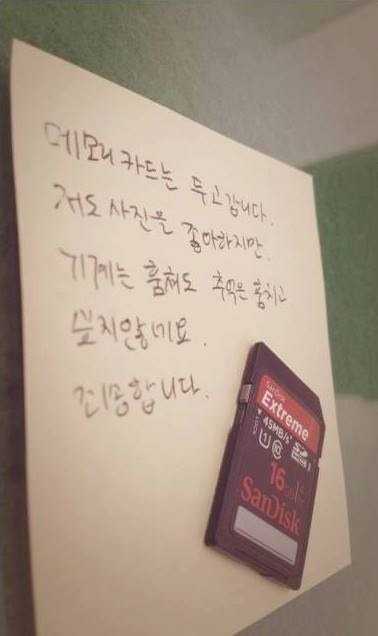 메모리 카드는 두고갑니다.
저도 사진을 좋아하지만.
기계는 훔쳐도 추억은 훔치고
싶지않네요.
죄송합니다.
SanDisk
Extreme
45MB/s
16
SanDisk